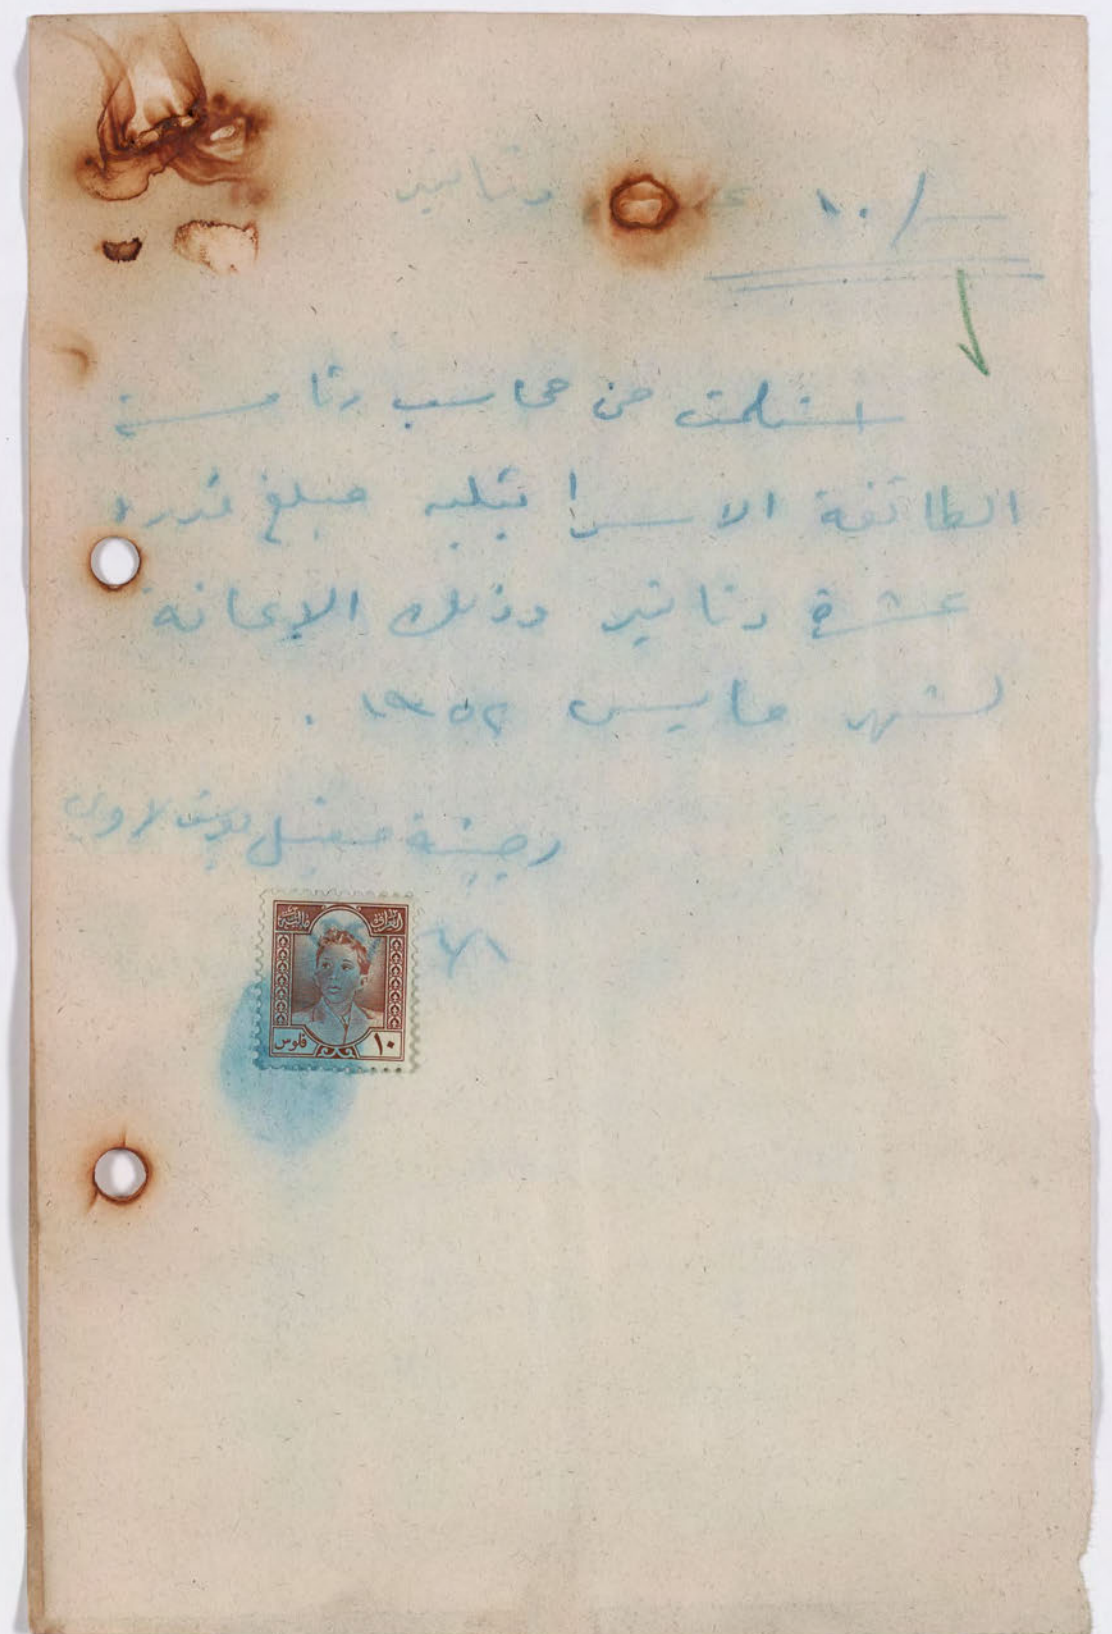 ١٠/— دنانير
استلمت من محاسب رئاسة
الطائفة الاسرائيلية مبلغ قدره
عشرة دنانير وذلك الاعانة
لشهر مايس ١٩٥٢ .
العراق مالية
١٠ فلوس